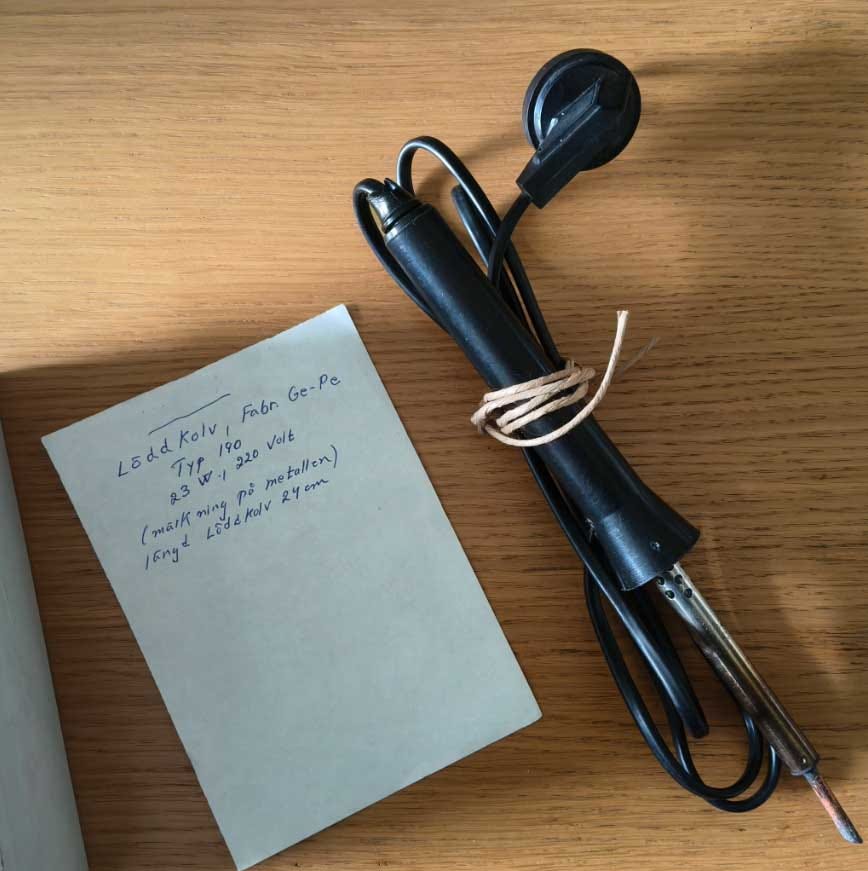 Lödd Kolv, Fabr. Ge-Pe
Typ 190
23 W., 220 Volt
(märkning på metallen)
längd Löddkolv 24 cm